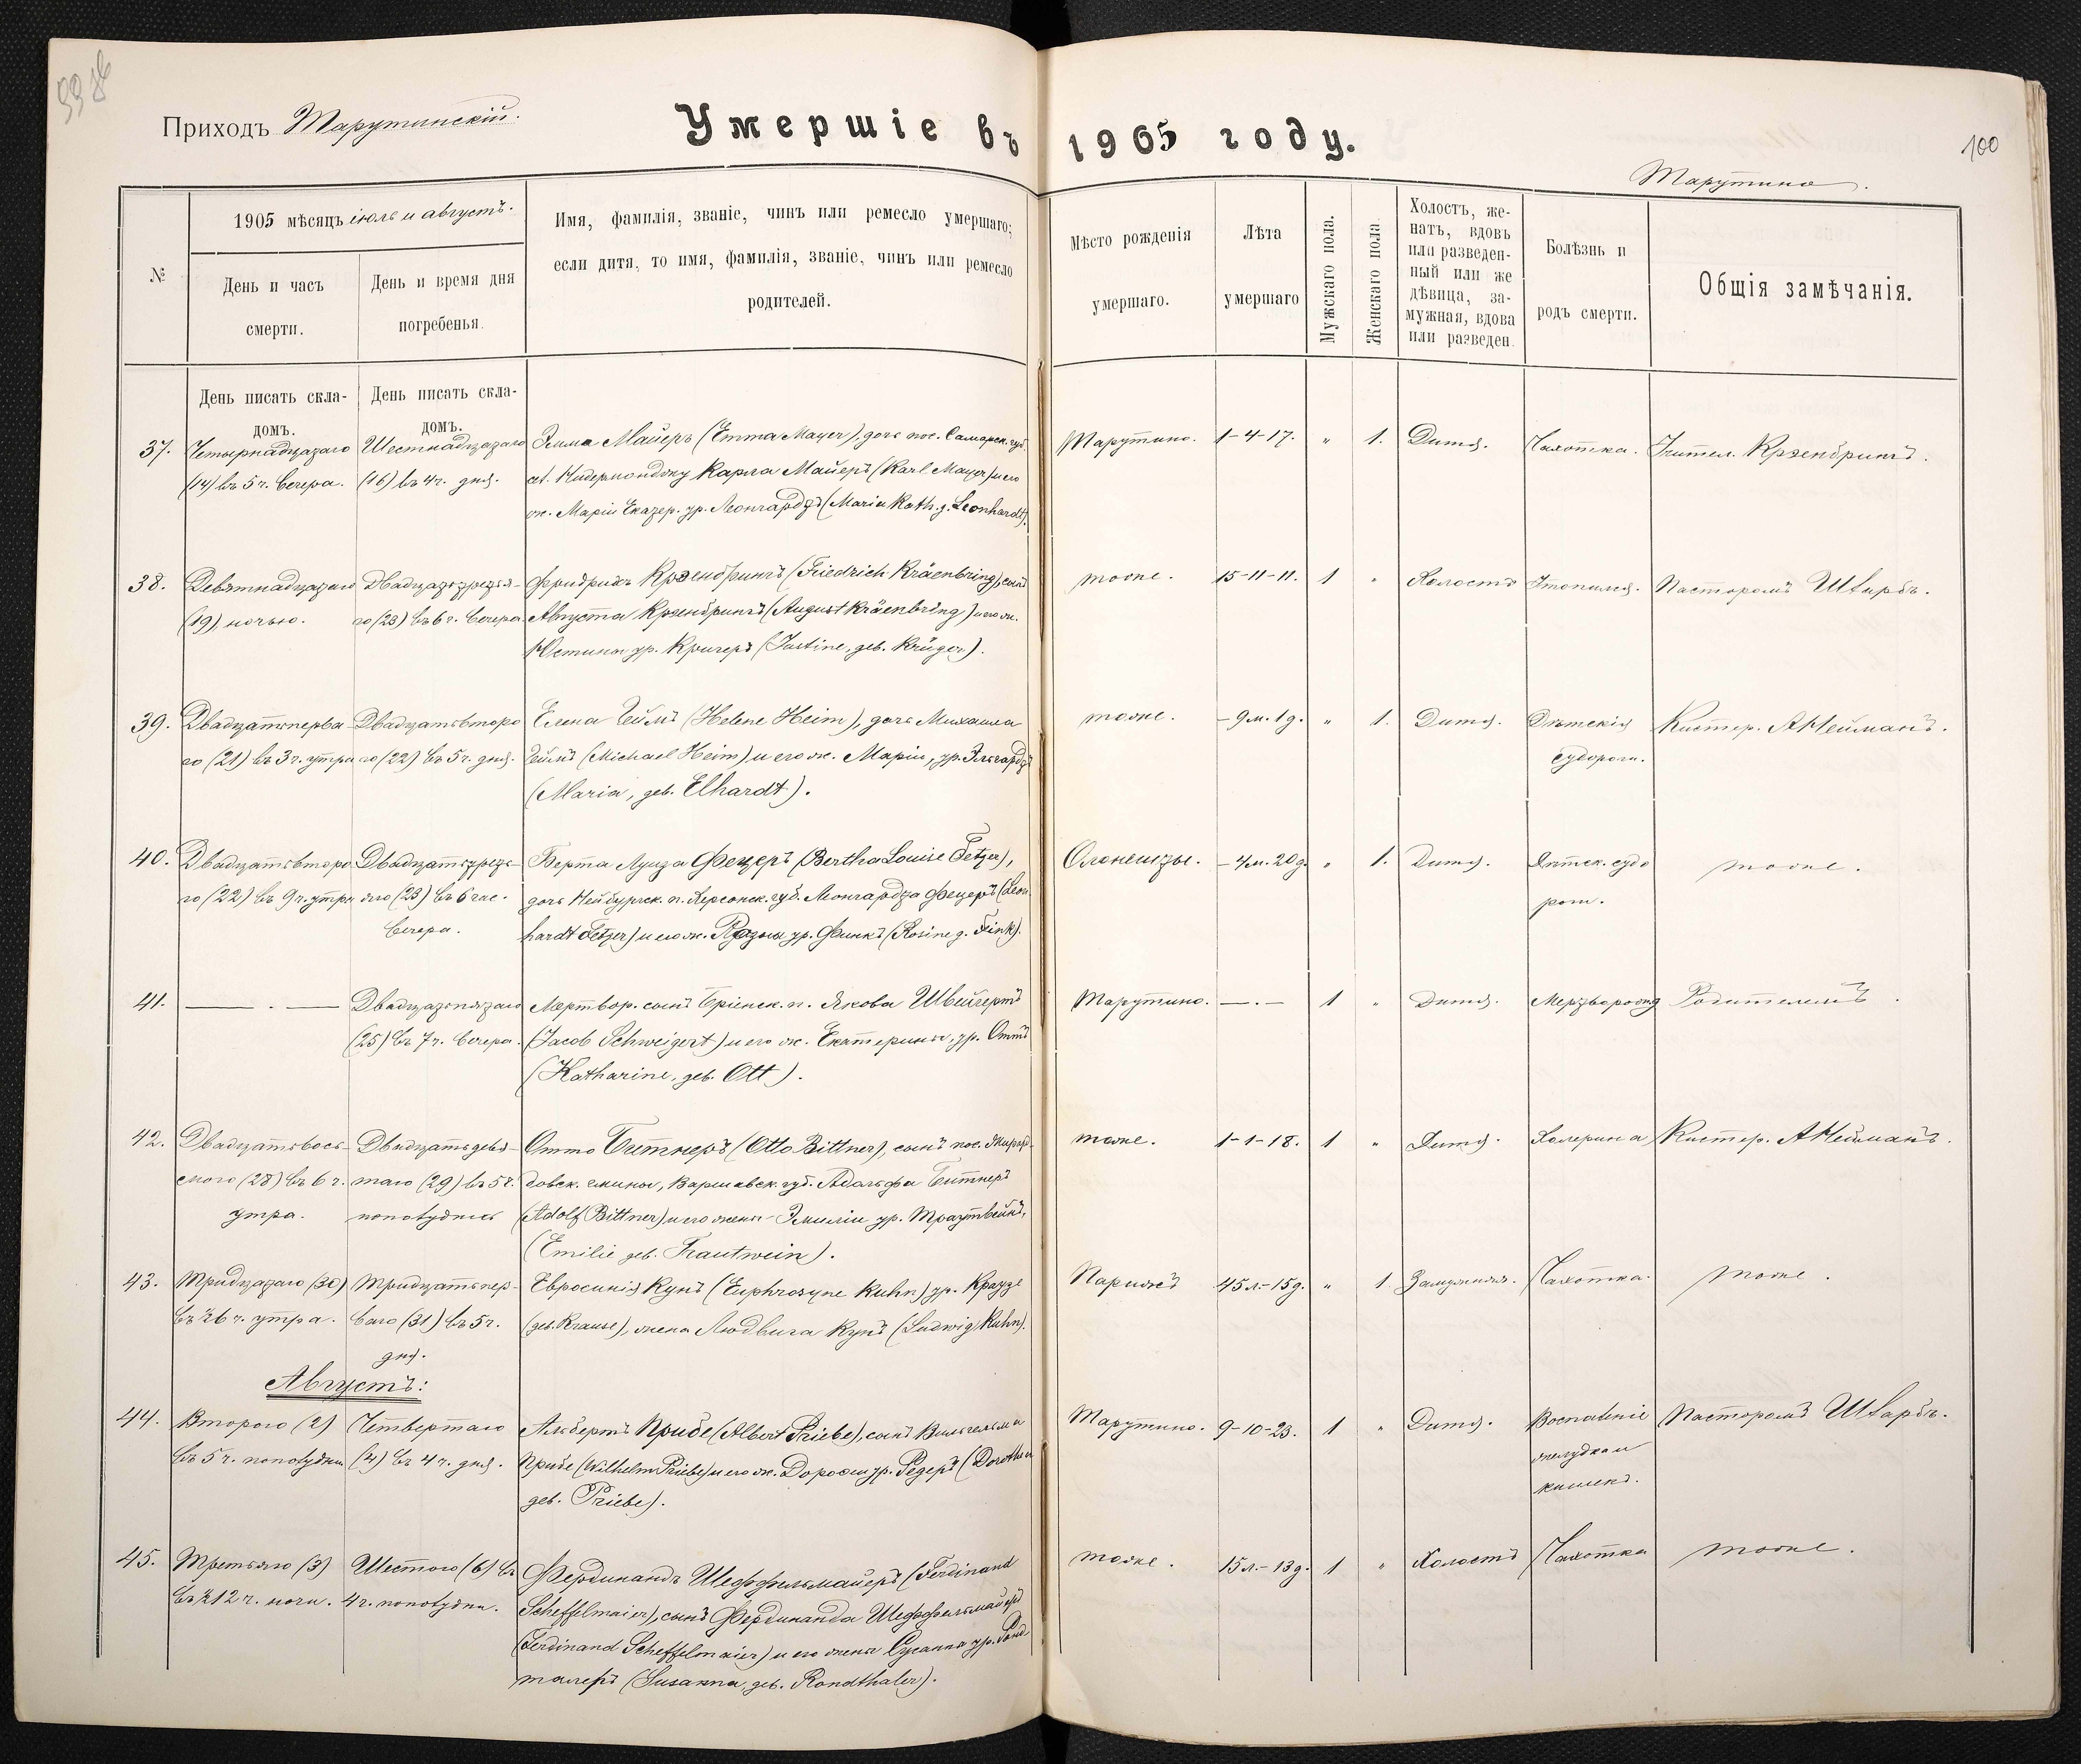 99 об
Приходъ Тарутинскій.
Умершіе въ 1905 году.
100
Тарутино.
№
1905 мѣсяцъ іюль и августъ.
День и часъ
смерти.
День и время дня
погребенья.
Имя, фамилія, званіе, чинъ или ремесло умершаго;
если дитя, то имя, фамилія, званіе, чинъ или ремесло
родителей.
Мѣсто рожденія
умершаго.
Лѣта
умершаго
Мужскаго пола.
Женскаго пола
Холостъ, же-
натъ, вдовъ
или разведен-
ный или же
дѣвица, за-
мужная, вдова
или разведен.
Болѣзнь и
родъ смерти.
Общія замѣчанія.
День писать скла-
домъ.
День писать скла-
домъ.
37. Четырнадцатаго Шестнадцатаго Эмма Майеръ (Emma Mayer), дочь пос. Самарск. губ. Тарутино. 1-4-17. " 1. Дитя. Чахотка. Учител. Крэенбрингъ.
(14) въ 5 ч. вечера. (16) въ 4 ч. дня. Карла Майеръ (Karl Mayer) и его
ж. Маріи Екатер. ур. Леонгардтъ (Maria Kath. g. Leonhardt).
38. Девятнадцатаго Двадцатьтретья- Фридрихъ Крэенбрингъ (Friedrich Kräenbring), сынъ тоже. 15-11-11. 1 " Холостъ Утопился. Пасторомъ Шварцъ.
(19) ночью. го (23) въ 6 ч. вечера Августа Крэенбрингъ (August Kräenbring) и его ж.
Юстины ур. Кригеръ (Justine, geb. Krüger).
39. Двадцатьперва- Двадцатьвторо Елена Геймъ (Helene Heim), дочь Михаила тоже. -9м.1д. " 1. Дитя. Дѣтскія Кистер. А Нейманъ.
го (21) въ 3 ч. утра го (22) въ 5 ч. дня. Геймъ (Michael Heim) и его ж. Маріи, ур. Эльгардтъ судороги.
(Maria, geb. Elhardt).
40. Двадцатьвторо Двадцатьтреть- Берта Луиза Фецеръ (Bertha Louise Fetzer), Олонешты. -4м.20д. " 1. Дитя. Дѣтск. судо тоже.
го (22) въ 9 ч. утра яго (23) въ 6 час. дочь Нейбургск. п. Херсонск. губ. Леонгардта Фецеръ (Leon рог.
вечера. hardt Fetzer) и его ж. Розины ур. Финкъ (Rosine g. Fink).
41. — . — Двадцатьпятаго Мертвор. сынъ Бріенск. п. Якова Швейгертъ Тарутино. —.— 1 " Дитя. Мертворожд Родителемъ.
(25) въ 7 ч. вечера. (Jacob Schweigert) и его ж. Екатерины, ур. Оттъ
(Katharine, geb. Ott).
42. Двадцатьвось- Двадцатьдевя- Отто Битнеръ (Otto Bittner), сынъ пос. тоже. 1-1-18. 1 " Дитя. Холерина Кистер. А Нейманъ.
мого (28) въ 6 ч. таго (29) въ 5 ч. довск. гмины, Варшавск. губ. Адольфа Битнеръ
утра. пополудни (Adolf Bittner) и его жены Эмиліи ур. Траутвейнъ,
(Emilie geb. Trautwein).
43. Тридцатаго (30) Тридцатьпер- Евросинія Кунъ (Euphrosyne Kuhn) ур. Краузе Парижъ 45л.-15д. " 1. Замужняя. Чахотка. тоже.
въ ½6 ч. утра. ваго (31) въ 5 ч. (geb. Krause), жена Людвига Кунъ (Ludwig Kuhn).
дня.
Августъ:
44. Второго (2) Четвертаго Альбертъ Прибе (Albert Priebe), сынъ Вильгельма Тарутино. 9-10-23. 1 " Дитя. Воспаленіе Пасторомъ Шварцъ.
въ 5 ч. пополудни (4) въ 4 ч. дня. Прибе (Wilhelm Priebe) и его ж. Доротеи ур. Редеръ (Dorothea желудка и
geb. Priebe). кишекъ.
45. Третьяго (3) Шестого (6) въ Фердинандъ Шеффельмайеръ (Ferdinand тоже. 15л.-13д. 1 " Холостъ Чахотка тоже.
въ ½12 ч. ночи. 4 ч. пополудни. Scheffelmaier), сынъ Фердинанда Шеффельмайеръ
(Ferdinand Scheffelmaier) и его жены Сусанна ур. Ронд-
талеръ (Susanna, geb. Rondthaler).